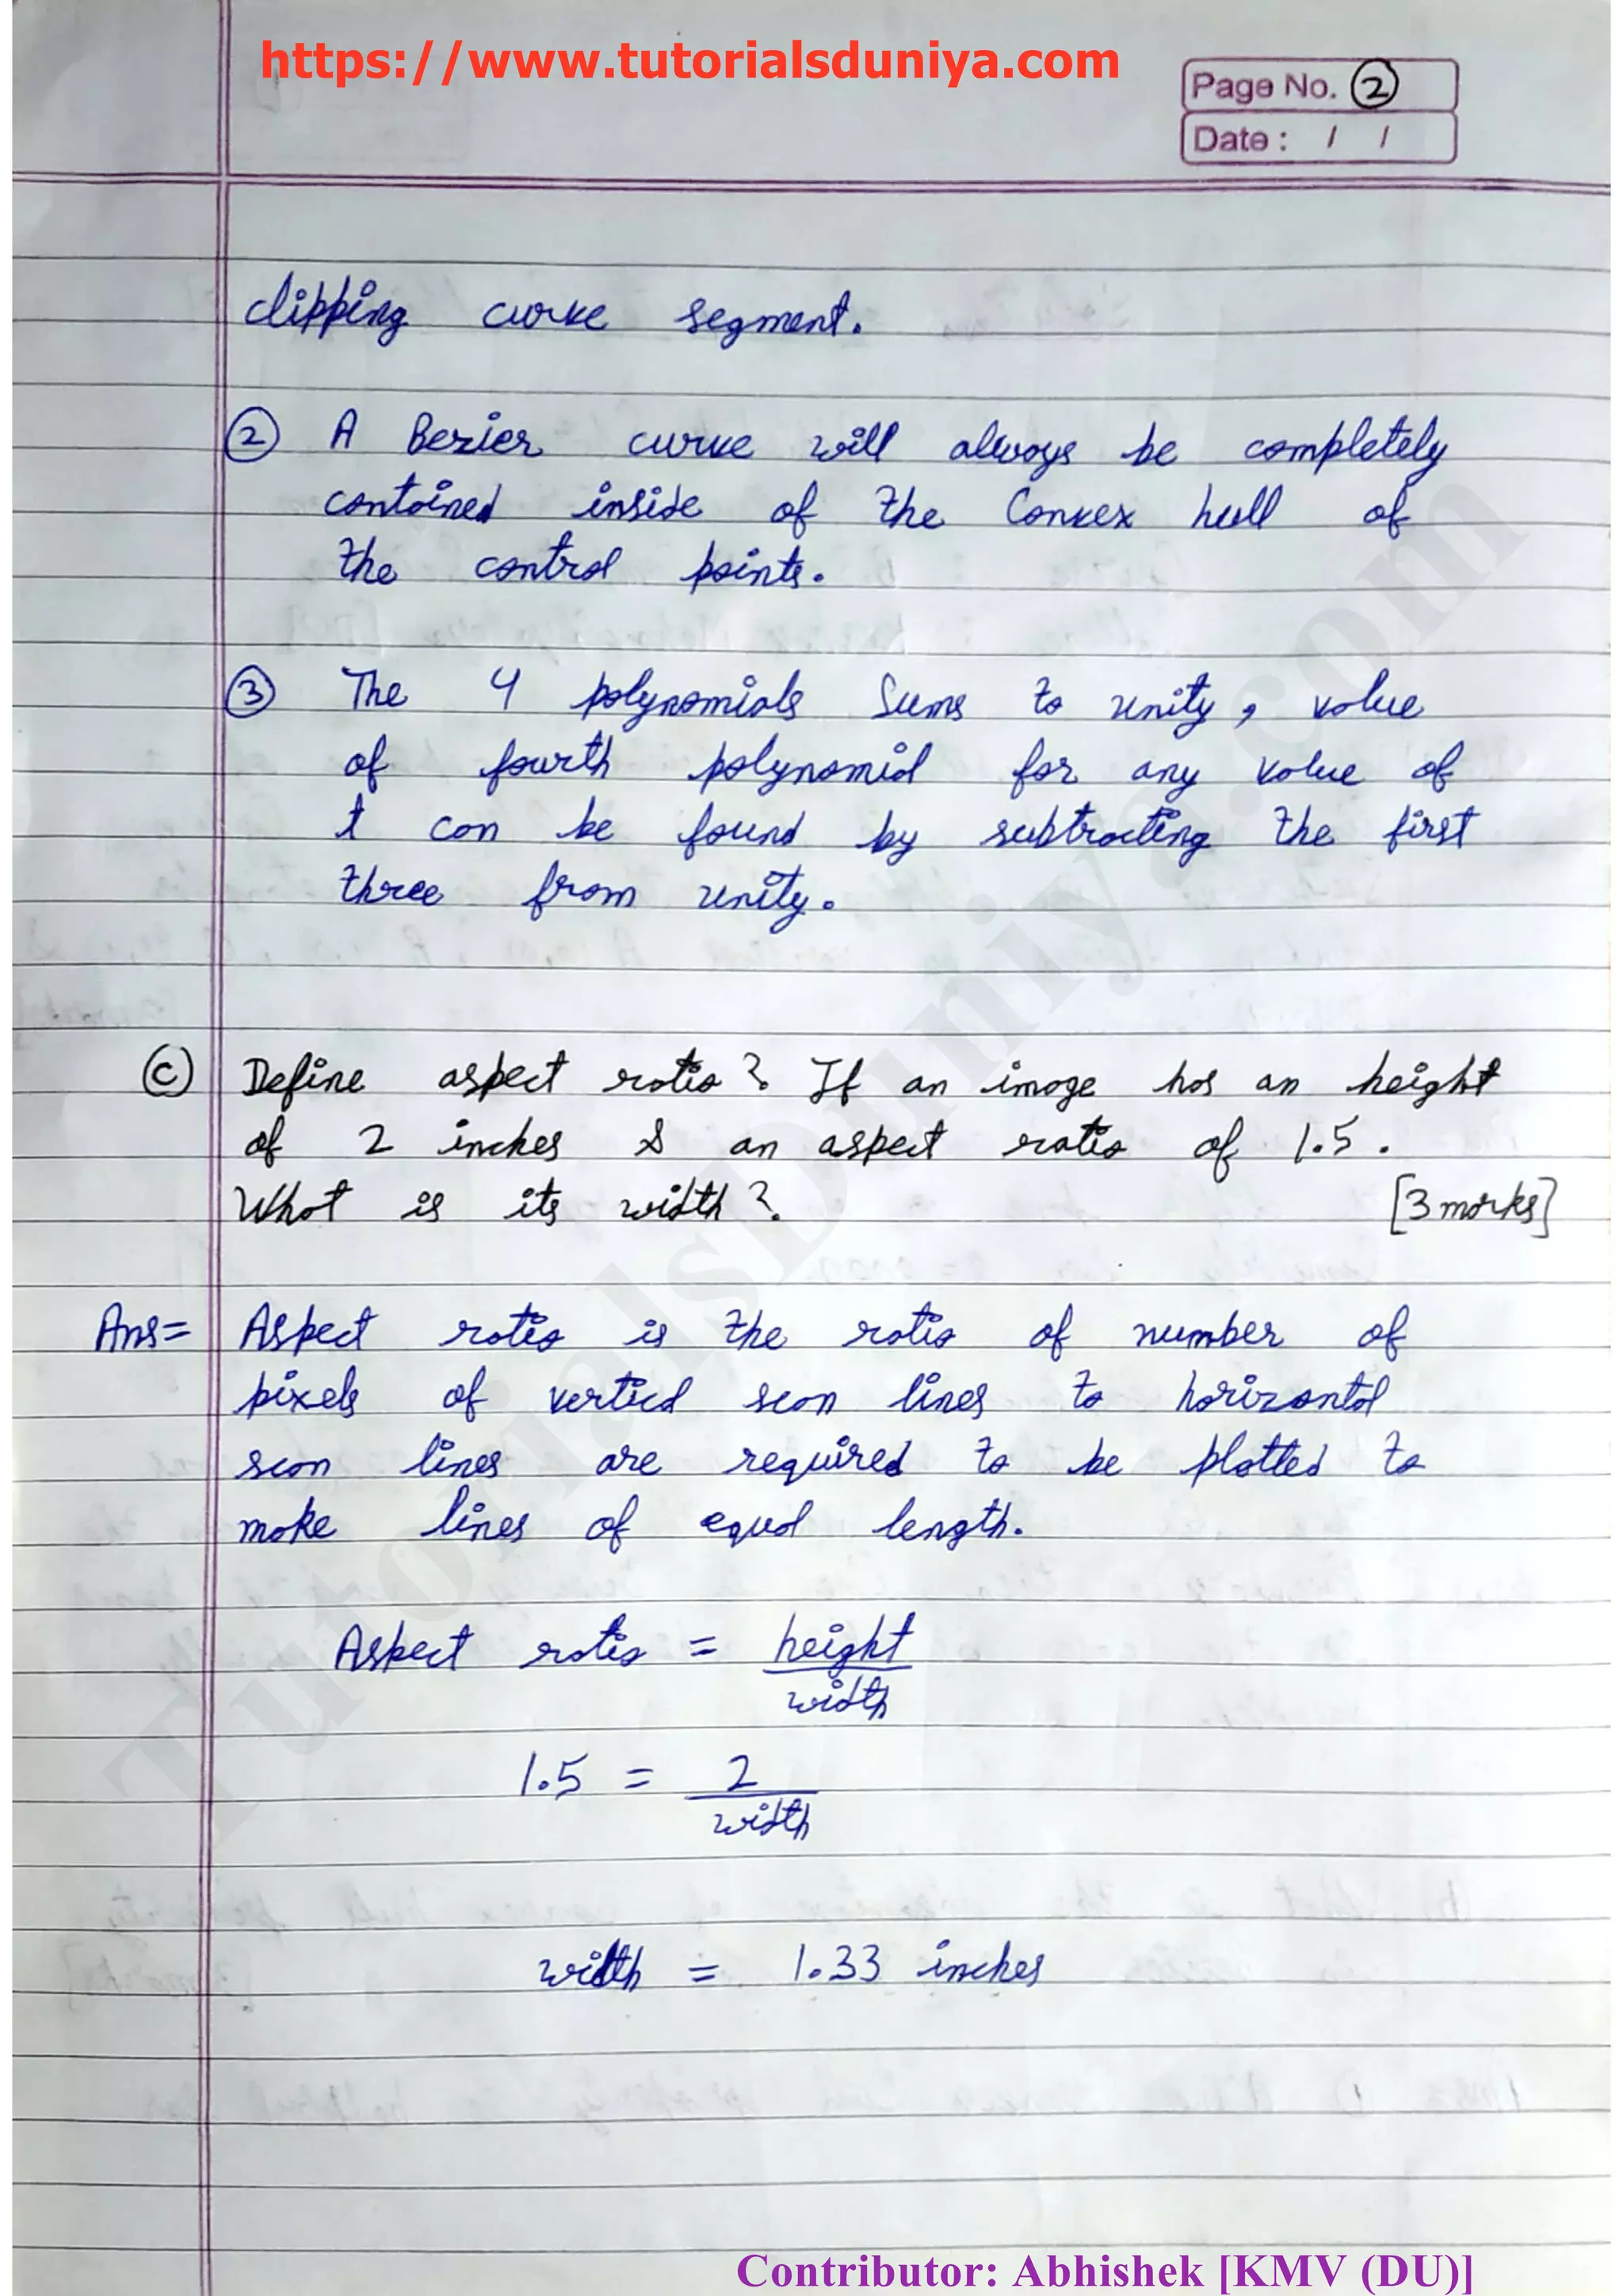 https://www.tutorialsduniya.com
Page No. 2
Date : / /
clipping curve segment.
② A Bezier curve will always be completely
contained inside of the Convex hull of
the control points.
③ The 4 polynomials Sums to unity, value
of fourth polynomial for any value of
t can be found by subtracting the first
three from unity.
ⓒ Define aspect ratio? If an image has an height
of 2 inches & an aspect ratio of 1.5.
What is its width?
[3 marks]
Ans= Aspect ratio is the ratio of number of
pixels of vertical scan lines to horizontal
scan lines are required to be plotted to
make lines of equal length.
Aspect ratio = height
width
1.5 = 2
width
width = 1.33 inches
TutorialsDuniya.com
Contributor: Abhishek [KMV (DU)]